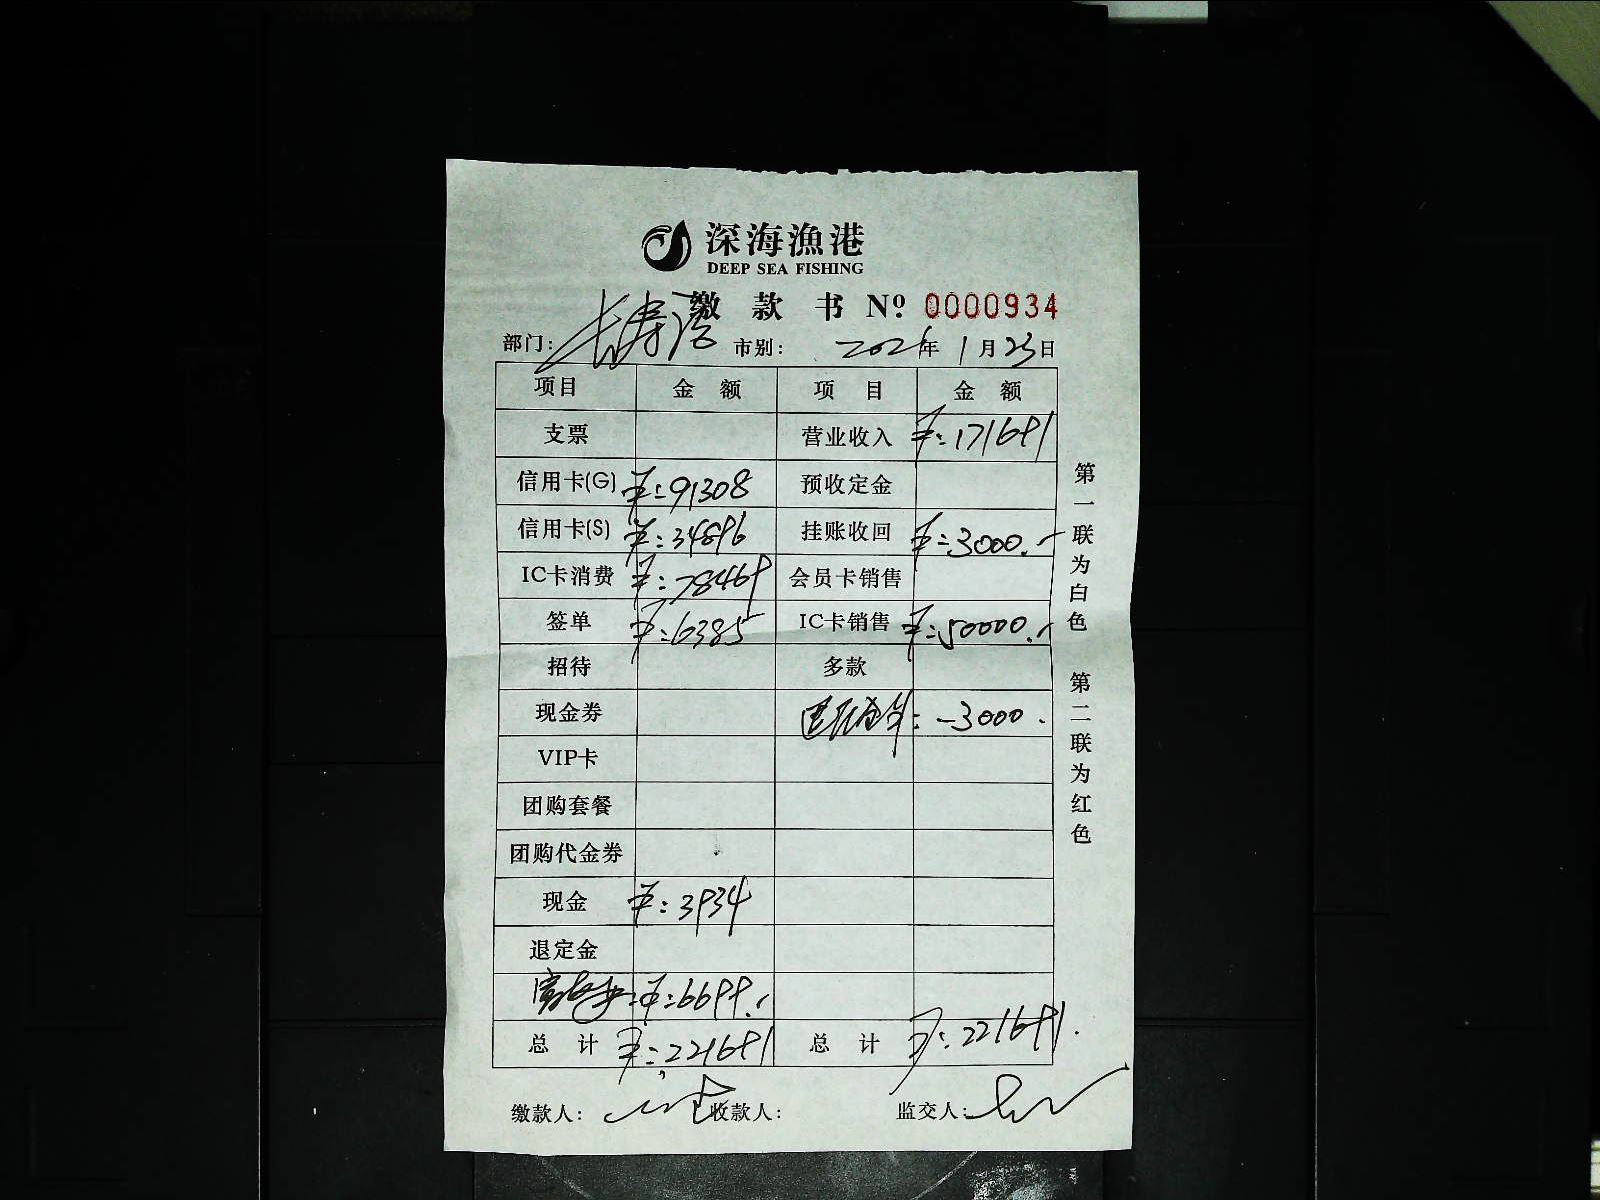 深海漁港
DEEP SEA FISHING
缴 款 书 Nº 0000934
部门: 长寿路 市别: 年 1 月 23 日
项目 金 额 项 目 金 额
支票 营业收入 ¥:171691
信用卡(G) ¥:91308 预收定金
信用卡(S) ¥:34896 挂账收回 ¥:3000.-
IC卡消费 ¥:78469 会员卡销售
签单 ¥:6385 IC卡销售 ¥:50000.-
招待 多款
现金券 :-3000.
VIP卡
团购套餐
团购代金券
现金 ¥:3934
退定金
¥:6699.-
总 计 ¥:221691 总 计 ¥:221691.
缴款人: 收款人: 监交人:
第一联为白色 第二联为红色